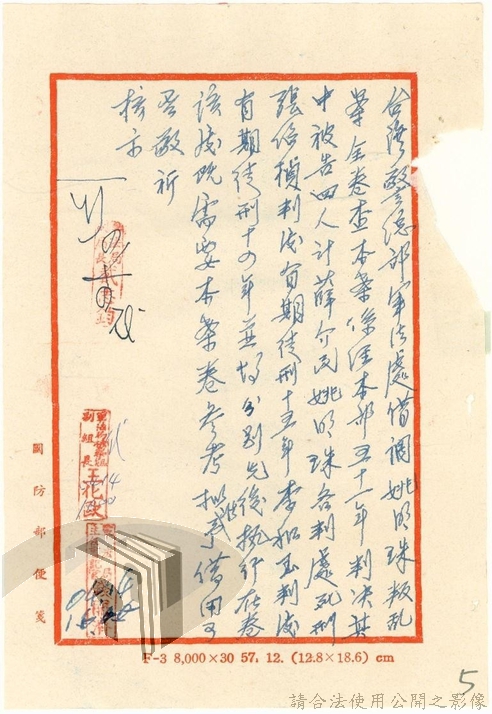 台灣警總部軍法處借調姚明珠叛乱
案全卷查本案係經本部五十一年判决其
中被告四人計薛介民姚明珠各判處死刑
張倍禎判處有期徒刑十五年李和玉判處
有期徒刑十四年並均分別先後執行在卷
該處既需要本案卷參考擬予借用可
否敬祈
核示
副組長王化歐
國防部便箋
F-3 8,000×30 57. 12. (12.8×18.6) cm
5
請合法使用公開之影像